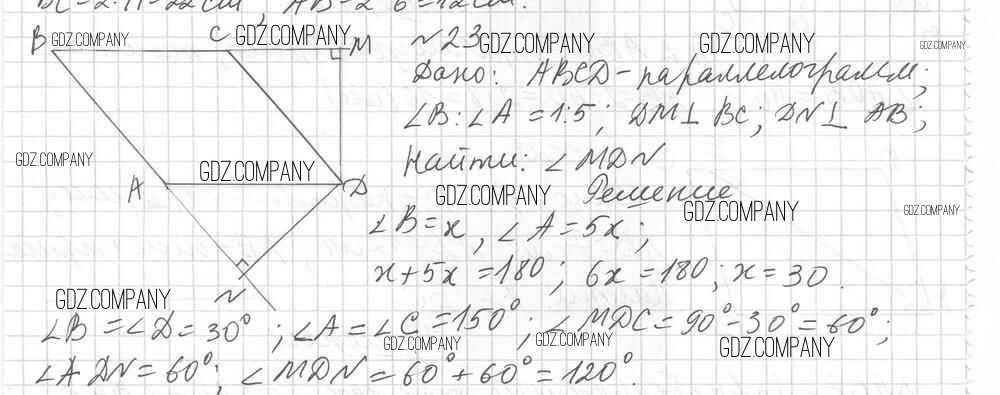 BC=2·11=22см, AB=2·6=12см.
B GDZ.COMPANY C GDZ.COMPANY M
№23 GDZ.COMPANY GDZ.COMPANY GDZ.COMPANY
Дано: ABCD-параллелограмм;
∠B:∠A=1:5; DM⊥BC; DN⊥AB;
GDZ.COMPANY Найти: ∠MDN
A GDZ.COMPANY D GDZ.COMPANY Решение
GDZ.COMPANY GDZ.COMPANY
∠B=x, ∠A=5x;
x+5x=180; 6x=180; x=30.
GDZ.COMPANY N
∠B=∠D=30°; ∠A=∠C=150°; ∠MDC=90°-30°=60°;
GDZ.COMPANY GDZ.COMPANY GDZ.COMPANY
∠ADN=60°; ∠MDN=60°+60°=120°.